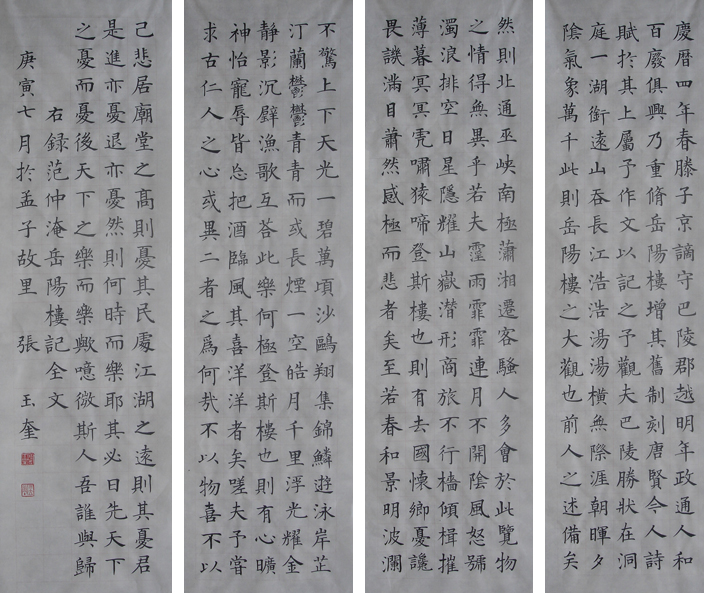 慶曆四年春滕子京謫守巴陵郡越明年政通人和
百廢俱興乃重脩岳陽樓增其舊制刻唐賢今人詩
賦於其上屬予作文以記之予觀夫巴陵勝狀在洞
庭一湖銜遠山吞長江浩浩湯湯橫無際涯朝暉夕
陰氣象萬千此則岳陽樓之大觀也前人之述備矣
然則北通巫峽南極瀟湘遷客騷人多會於此覽物
之情得無異乎若夫霪雨霏霏連月不開陰風怒號
濁浪排空日星隱耀山嶽潛形商旅不行檣傾楫摧
薄暮冥冥虎嘯猿啼登斯樓也則有去國懷鄉憂讒
畏譏滿目蕭然感極而悲者矣至若春和景明波瀾
不驚上下天光一碧萬頃沙鷗翔集錦鱗遊泳岸芷
汀蘭鬱鬱青青而或長煙一空皓月千里浮光耀金
靜影沉璧漁歌互荅此樂何極登斯樓也則有心曠
神怡寵辱皆忘把酒臨風其喜洋洋者矣嗟夫予嘗
求古仁人之心或異二者之爲何哉不以物喜不以
己悲居廟堂之高則憂其民處江湖之遠則其憂君
是進亦憂退亦憂然則何時而樂耶其必曰先天下
之憂而憂後天下之樂而樂歟噫微斯人吾誰與歸
右録范仲淹岳陽樓記全文
庚寅七月於孟子故里 張玉奎